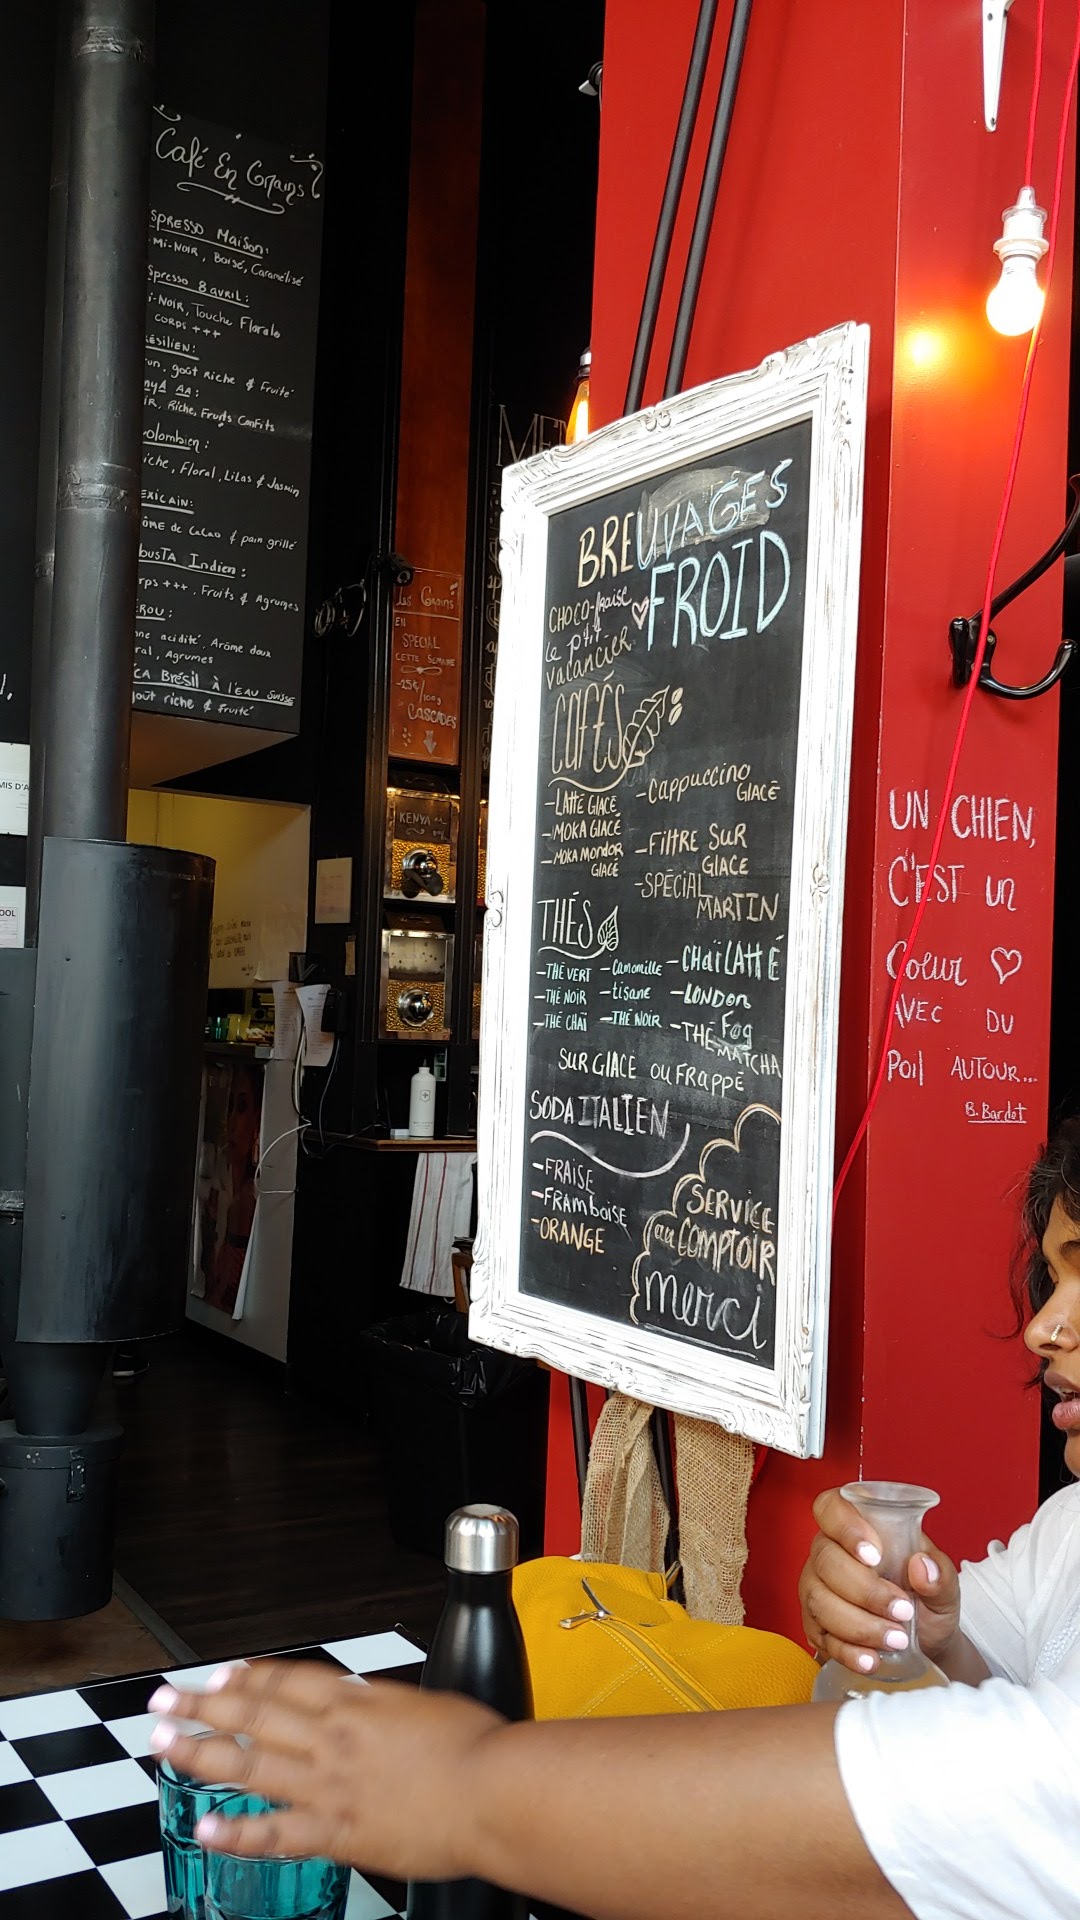 Café En Grains
SPRESSO Maison:
Mi-NoIR, Boisé, Caramélisé
spresso 8 avril:
i-NoIR, Touche Florale
CORPS +++
ÉSILIEN:
run, goût Riche & Fruité
nyA AA:
IR, Riche, Fruits Confits
olombien:
iche, Floral, Lilas & Jasmin
EXICAIN:
ÔME de Cacao & pain grillé
busTA Indien:
rps +++, Fruits & Agrumes
ÉROU:
ne acidité, Arôme doux
ral, Agrumes
CA Brésil À l'EAU SUISSE
goût riche & Fruité
MIS D'A
OOL
Les Grains
EN
SPECIAL
CETTE SEMAINE
-25¢/100g
CASCADES
KENYA
ME
BREUVAGES
FROID
CHOCO-fraise
Le p'tit
vacancier
CAFÉS
-LATTÉ GLACÉ
-MOKA GLACÉ
-MOKA MONDOR
GLACÉ
-Cappuccino
GLACÉ
-FILTRE SUR
GLACE
-SPÉCIAL
MARTIN
THÉS
-THÉ VERT
-THÉ NOIR
-THÉ CHAÏ
-Camomille
-tisane
-THÉ NOIR
-CHAÏ LATTÉ
-LONDON
Fog
-THÉ MATCHA
SUR GLACE OU FRAPPÉ
SODA ITALIEN
-FRAISE
-FRAMBOISE
-ORANGE
SERVICE
au COMPTOIR
merci
UN CHIEN,
C'EST un
Coeur ♡
AVEC DU
Poil AUTOUR...
B. Bardot